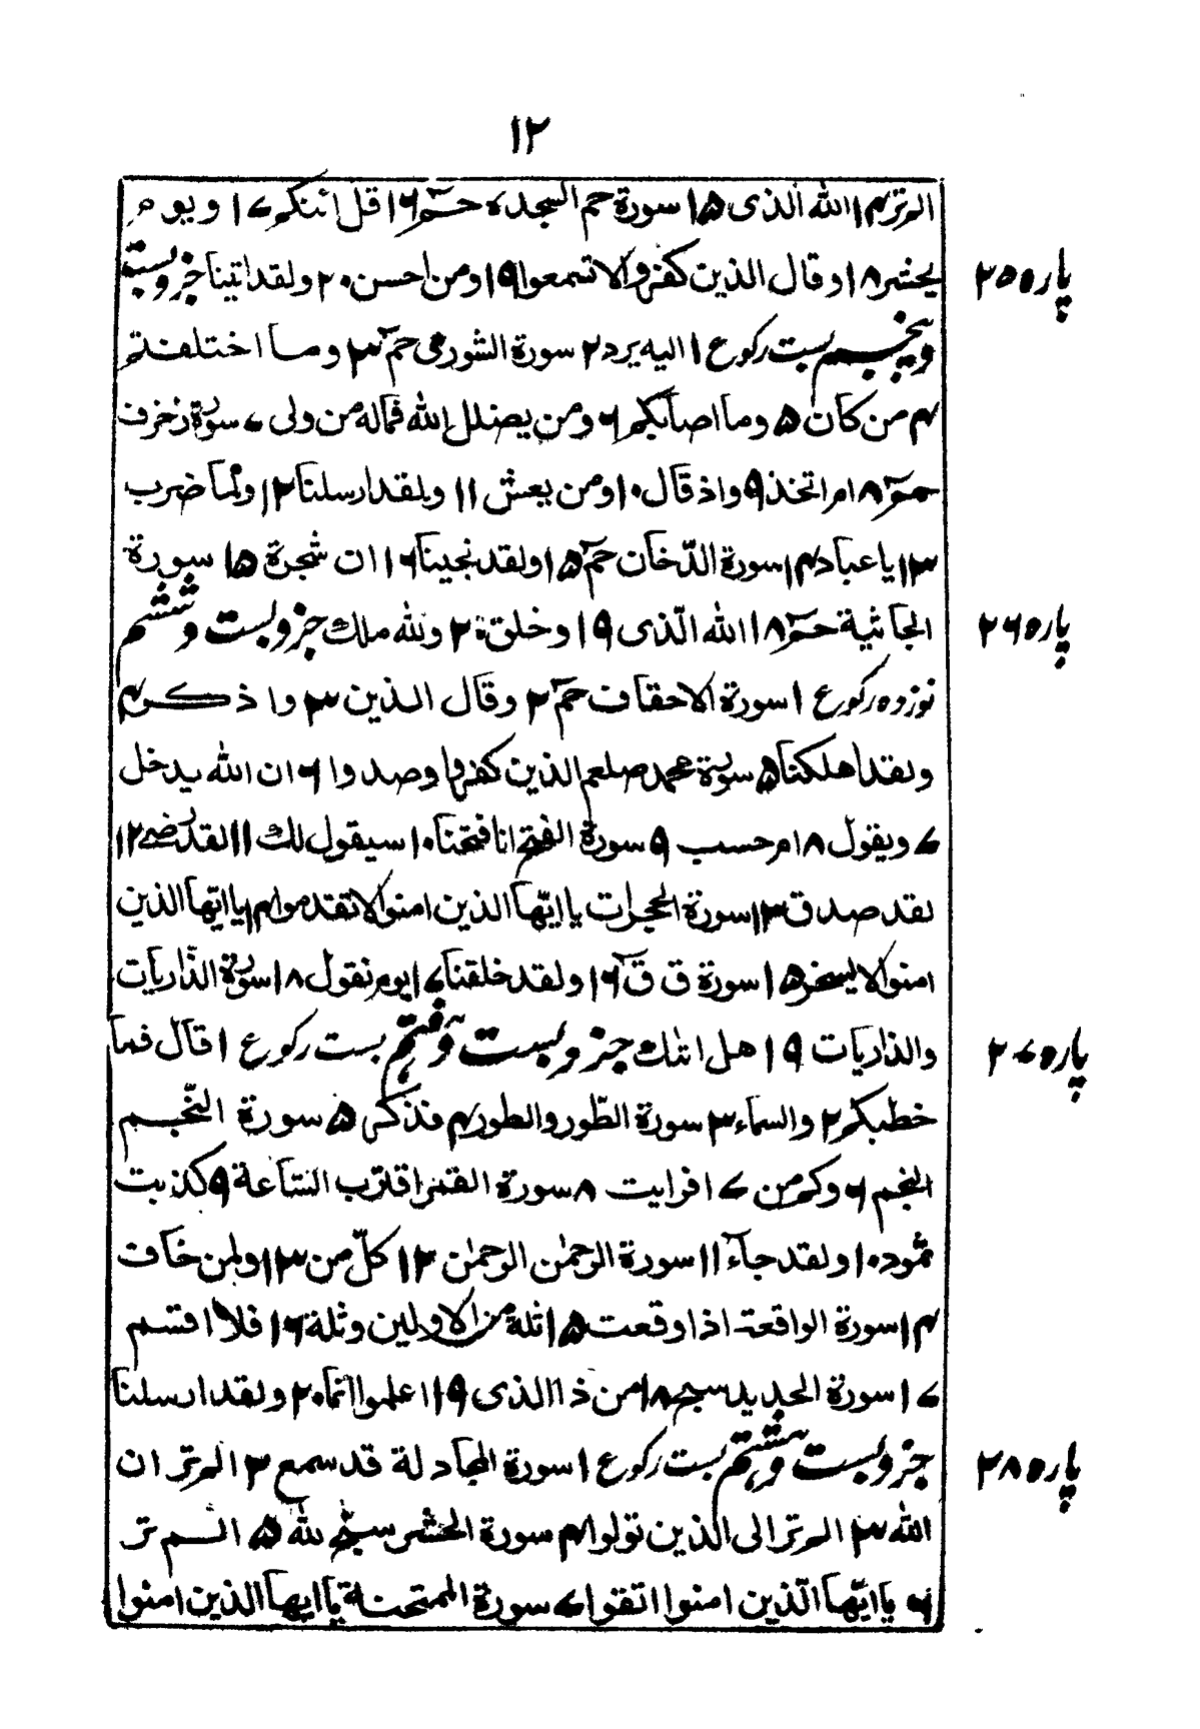 ۱۲
المرتر۱۴ الله الذی ۱۵ سورة حم السجده حـم ۱۶ قل ائنکم ۱۷ ویوم
یحشر ۱۸ وقال الذین کفروا لا تسمعوا ۱۹ ومن احسن ۲۰ ولقد اتینا جزو بست
پاره ۲۵
وپنجم بست رکوع ۱ الیه یرد ۲ سورة الشوری حم ۳ وما اختلفتم
۴ من کان ۵ وما اصابکم ۶ ومن یضلل الله فماله من ولی ۷ سورة زخرف
حم ۸ ام اتخذ ۹ واذ قال ۱۰ ومن یعش ۱۱ ولقد ارسلنا ۱۲ ولما ضرب
۱۳ یا عباد ۱۴ سورة الدّخان حم ۱۵ ولقد نجینا ۱۶ ان شجرة ۱۵ سورة
الجاثیة حم ۱۸ الله الّذی ۱۹ وخلق ۲۰ ولله ملك جزو بست وششم
پاره ۲۶
نوزده رکوع ۱ سورة الاحقاف حم ۲ وقال الذین ۳ واذکر ۴
ولقد اهلکنا ۵ سورة محمد صلعم الذین کفروا وصدوا ۶ ان الله یدخل
۷ ویقول ۸ ام حسب ۹ سورة الفتح انا فتحنا ۱۰ سیقول لك ۱۱ لقد رضی ۱۲
لقد صدق ۱۳ سورة الحجرات یا ایّها الذین امنوا لا تقدموا ۱۴ یا ایها الذین
امنوا لا یسخر ۱۵ سورة ق ق ۱۶ ولقد خلقنا ۱۷ یوم نقول ۱۸ سورة الذّاریات
والذاریات ۱۹ هل اتٰك جزو بست وهفتم بست رکوع ۱ قال فما
پاره ۲۷
خطبکم ۲ والسماء ۳ سورة الطّور والطور ۴ فذکر ۵ سورة النّجم
النجم ۶ وکم من ۷ افرایت ۸ سورة القمر اقترب السّاعة ۹ کذبت
ثمود ۱۰ ولقد جاء ۱۱ سورة الرحمٰن الرحمٰن ۱۲ کلّ من ۱۳ ولمن خاف
۱۴ سورة الواقعة اذا وقعت ۱۵ ثلة من الاولین وثلة ۱۶ فلا اقسم
۱۷ سورة الحدید سبح ۱۸ من ذا الذی ۱۹ اعلموا انما ۲۰ ولقد ارسلنا
جزو بست وهشتم بست رکوع ۱ سورة المجادلة قد سمع ۲ المر تر ان
پاره ۲۸
الله ۳ الم تر الی الذین تولوا ۴ سورة الحشر سبح لله ۵ الم تر
۶ یا ایّها الّذین امنوا اتقوا ۷ سورة الممتحنة یا ایها الذین امنوا